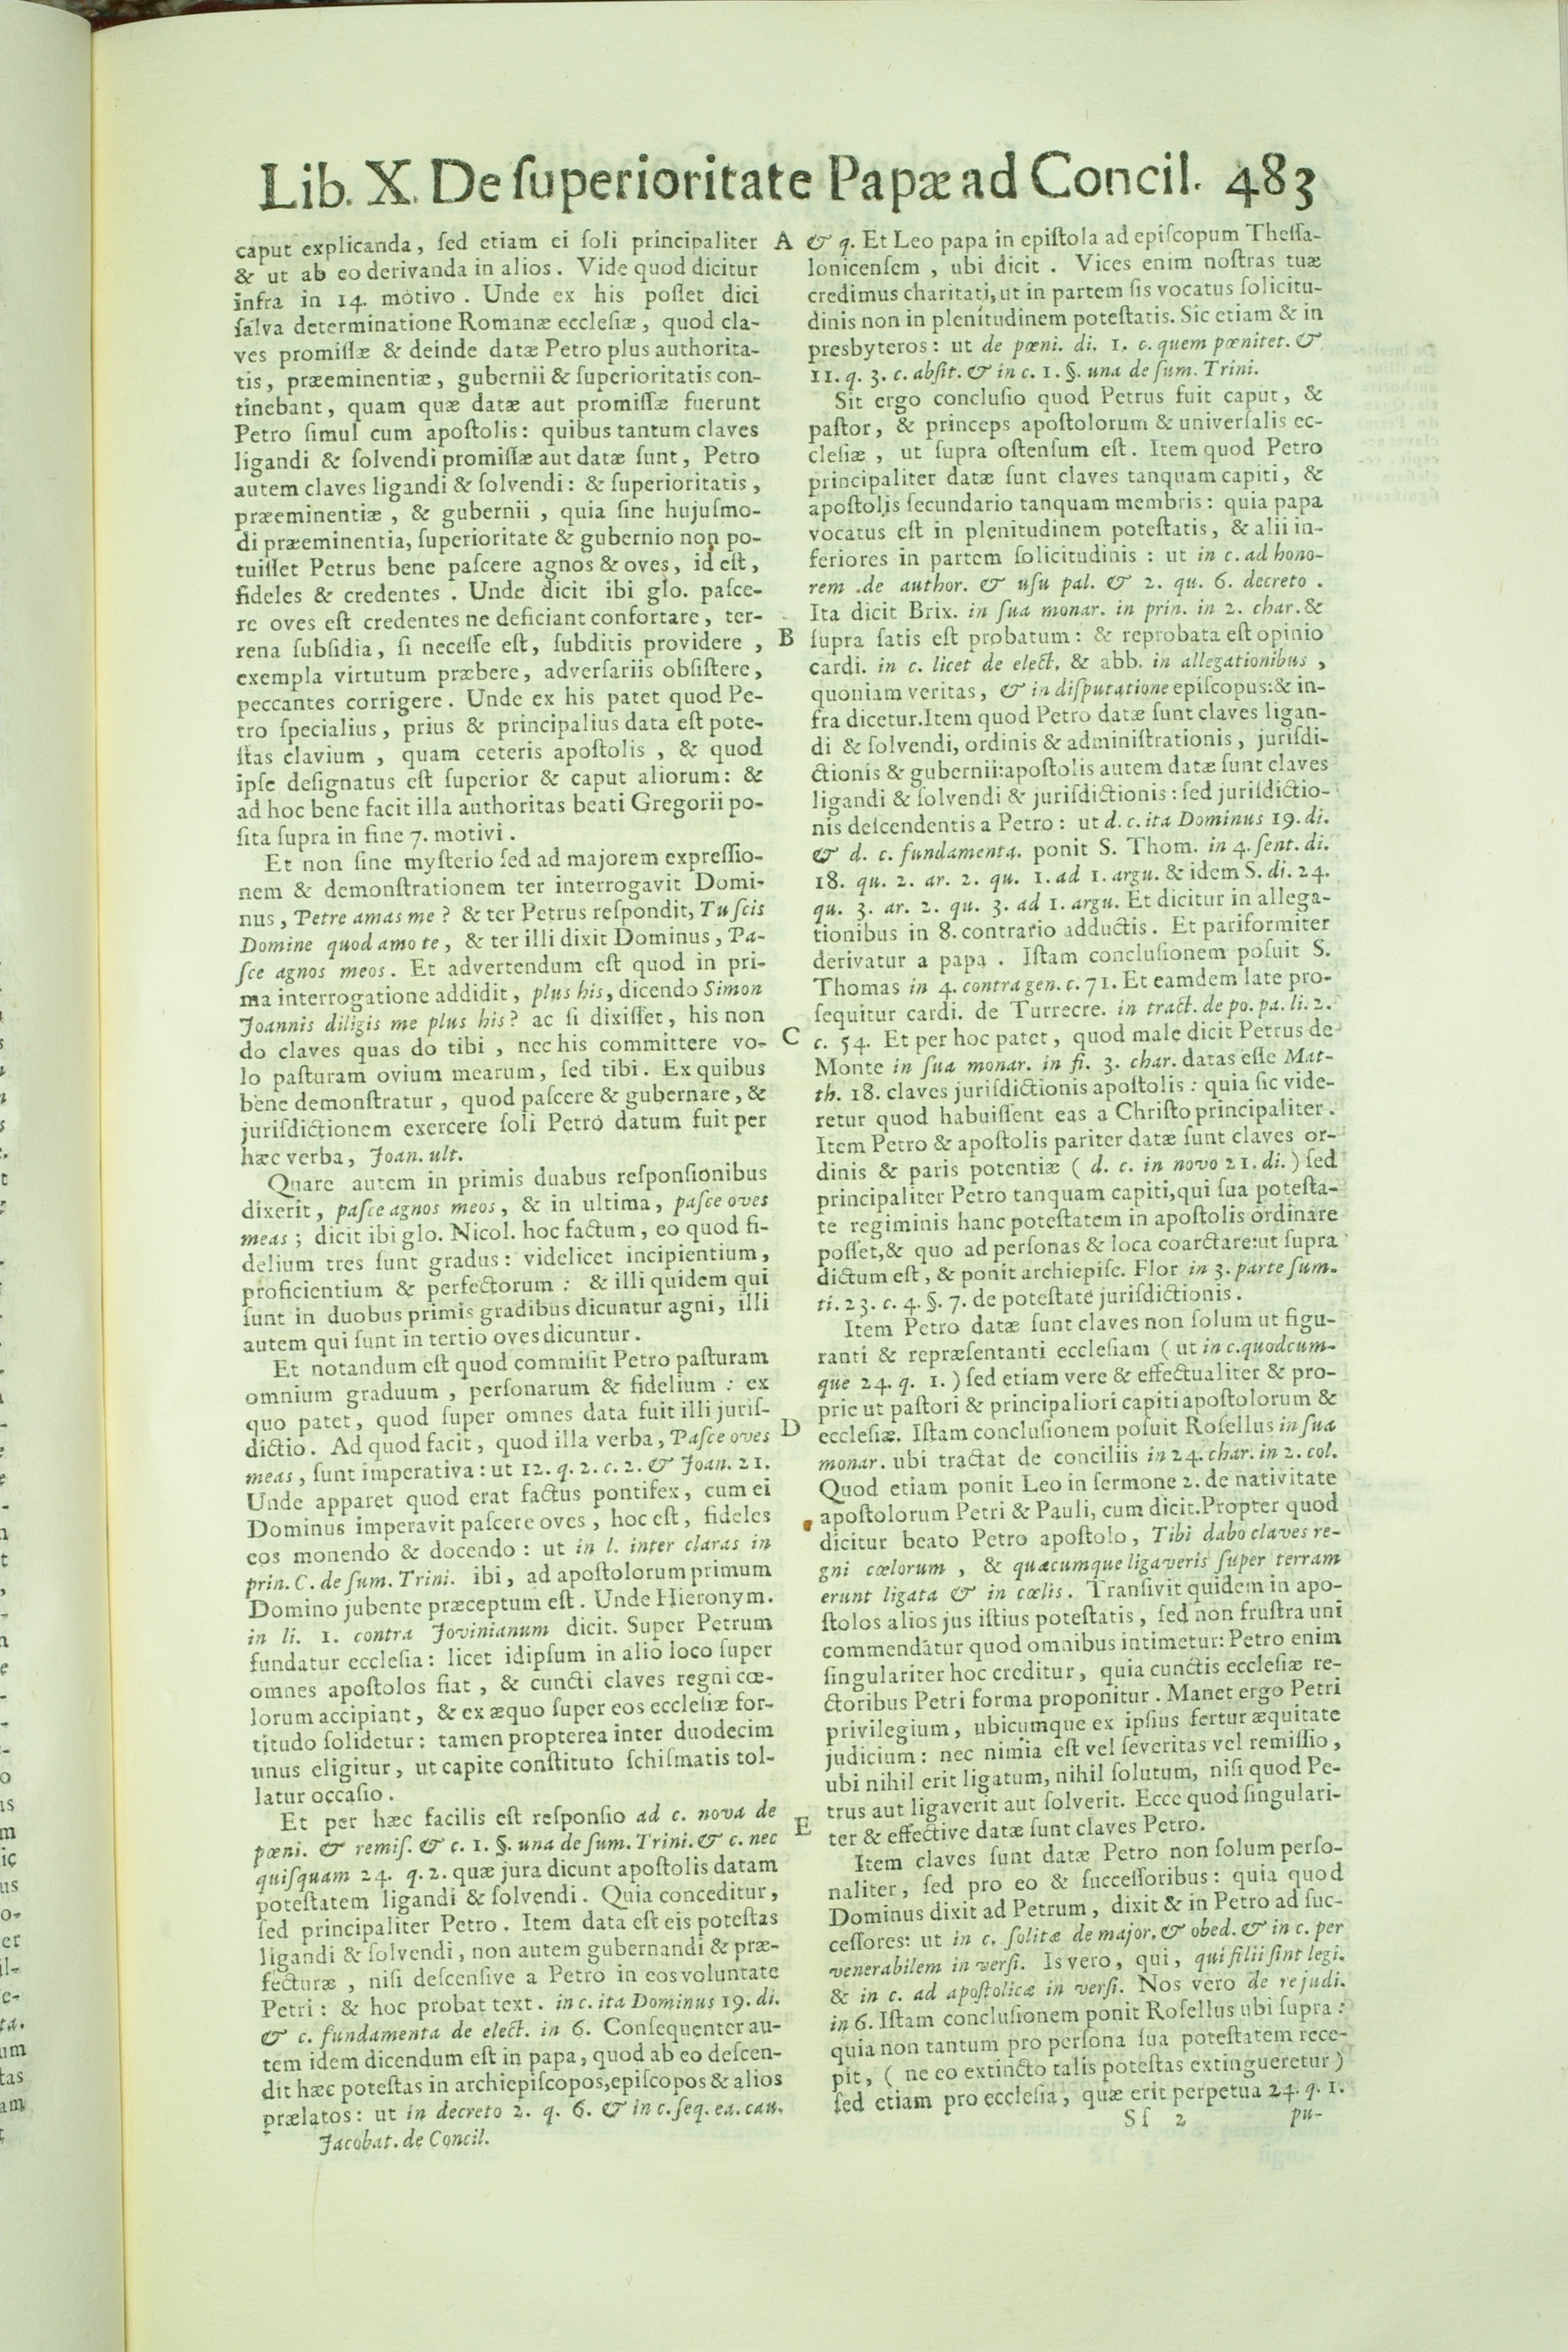 Lib. X. De ſuperioritate Papæ ad Concil. 483
caput explicanda, ſed etiam ei ſoli principaliter
& ut ab eo derivanda in alios. Vide quod dicitur
infra in 14. motivo. Unde ex his poſſet dici
ſalva determinatione Romanæ eccleſiæ, quod cla-
ves promiſſæ & deinde datæ Petro plus authorita-
tis, præeminentiæ, gubernii & ſuperioritatis con-
tinebant, quam quæ datæ aut promiſſæ fuerunt
Petro ſimul cum apoſtolis: quibus tantum claves
ligandi & ſolvendi promiſſæ aut datæ ſunt, Petro
autem claves ligandi & ſolvendi: & ſuperioritatis,
præeminentiæ, & gubernii, quia ſine hujuſmo-
di præeminentia, ſuperioritate & gubernio non po-
tuiſſet Petrus bene paſcere agnos & oves, id eſt,
fideles & credentes. Unde dicit ibi glo. paſce-
re oves eſt credentes ne deficiant confortare, ter-
rena ſubſidia, ſi neceſſe eſt, ſubditis providere,
exempla virtutum præbere, adverſariis obſiſtere,
peccantes corrigere. Unde ex his patet quod Pe-
tro ſpecialius, prius & principalius data eſt pote-
ſtas clavium, quam ceteris apoſtolis, & quod
ipſe deſignatus eſt ſuperior & caput aliorum: &
ad hoc bene facit illa authoritas beati Gregorii po-
ſita ſupra in fine 7. motivi.
Et non ſine myſterio ſed ad majorem expreſſio-
nem & demonſtrationem ter interrogavit Domi-
nus, Petre amas me? & ter Petrus reſpondit, Tu ſcis
Domine quod amo te, & ter illi dixit Dominus, Pa-
ſce agnos meos. Et advertendum eſt quod in pri-
ma interrogatione addidit, plus his, dicendo Simon
Joannis diligis me plus his? ac ſi dixiſſet, his non
do claves quas do tibi, nec his committere vo-
lo paſturam ovium mearum, ſed tibi. Ex quibus
bene demonſtratur, quod paſcere & gubernare, &
jurisdictionem exercere ſoli Petro datum fuit per
hæc verba, Joan. ult.
Quare autem in primis duabus reſponſionibus
dixerit, paſce agnos meos, & in ultima, paſce oves
meas; dicit ibi glo. Nicol. hoc factum, eo quod fi-
delium tres ſunt gradus: videlicet incipientium,
proficientium & perfectorum: & illi quidem qui
ſunt in duobus primis gradibus dicuntur agni, illi
autem qui ſunt in tertio oves dicuntur.
Et notandum eſt quod commiſit Petro paſturam
omnium graduum, perſonarum & fidelium: ex
quo patet, quod ſuper omnes data fuit illi juriſ-
dictio. Ad quod facit, quod illa verba, Paſce oves
meas, ſunt imperativa: ut 12. q. 2. c. 2. & Joan. 21.
Unde apparet quod erat factus pontifex, cum ei
Dominus imperavit paſcere oves, hoc eſt, fideles
eos monendo & docendo: ut in l. inter claras in
prin. C. de ſum. Trini. ibi, ad apoſtolorum primum
Domino jubente præceptum eſt. Unde Hieronym.
in li. 1. contra Jovinianum dicit. Super Petrum
fundatur eccleſia: licet idipſum in alio loco ſuper
omnes apoſtolos fiat, & cuncti claves regni cœ-
lorum accipiant, & ex æquo ſuper eos eccleſiæ for-
titudo ſolidetur: tamen propterea inter duodecim
unus eligitur, ut capite conſtituto ſchiſmatis tol-
latur occaſio.
Et per hæc facilis eſt reſponſio ad c. nova de
pœni. & remiſ. & c. 1. §. una de ſum. Trini. & c. nec
quiſquam 24. q. 2. quæ jura dicunt apoſtolis datam
poteſtatem ligandi & ſolvendi. Quia conceditur,
ſed principaliter Petro. Item data eſt eis poteſtas
ligandi & ſolvendi, non autem gubernandi & præ-
fecturæ, niſi deſcenſive a Petro in eos voluntate
Petri: & hoc probat text. in c. ita Dominus 19. di.
& c. fundamenta de elect. in 6. Conſequenter au-
tem idem dicendum eſt in papa, quod ab eo deſcen-
dit hæc poteſtas in archiepiſcopos, epiſcopos & alios
prælatos: ut in decreto 2. q. 6. & in c. ſeq. ea. cau.
Jacobat. de Concil.
A
B
C
D
E
& q. Et Leo papa in epiſtola ad epiſcopum Theſſa-
lonicenſem, ubi dicit. Vices enim noſtras tuæ
credimus charitati, ut in partem ſis vocatus ſolicitu-
dinis non in plenitudinem poteſtatis. Sic etiam & in
presbyteros: ut de pœni. di. 1. c. quem pœnitet. &
11. q. 3. c. abſit. & in c. 1. §. una de ſum. Trini.
Sit ergo concluſio quod Petrus fuit caput, &
paſtor, & princeps apoſtolorum & univerſalis ec-
cleſiæ, ut ſupra oſtenſum eſt. Item quod Petro
principaliter datæ ſunt claves tanquam capiti, &
apoſtolis ſecundario tanquam membris: quia papa
vocatus eſt in plenitudinem poteſtatis, & alii in-
feriores in partem ſolicitudinis: ut in c. ad hono-
rem. de author. & uſu pal. & 2. qu. 6. decreto.
Ita dicit Brix. in ſua monar. in prin. in 2. char. &
ſupra ſatis eſt probatum: & reprobata eſt opinio
cardi. in c. licet de elect. & abb. in allegationibus,
quoniam veritas, & in diſputatione epiſcopus: & in-
fra dicetur. Item quod Petro datæ ſunt claves ligan-
di & ſolvendi, ordinis & adminiſtrationis, jurisdi-
ctionis & gubernii: apoſtolis autem datæ ſunt claves
ligandi & ſolvendi & juriſdictionis: ſed juriſdictio-
nis deſcendentis a Petro: ut d. c. ita Dominus 19. di.
& d. c. fundamenta. ponit S. Thom. in 4. ſent. di.
18. qu. 2. ar. 2. qu. 1. ad 1. argu. & idem S. di. 24.
qu. 3. ar. 2. qu. 3. ad 1. argu. Et dicitur in allega-
tionibus in 8. contrario adductis. Et pariformiter
derivatur a papa. Iſtam concluſionem poſuit S.
Thomas in 4. contra gen. c. 71. Et eamdem late pro-
ſequitur cardi. de Turrecre. in tract. de po. pa. li. 2.
c. 54. Et per hoc patet, quod male dicit Petrus de
Monte in ſua monar. in fi. 3. char. datas eſſe Mat-
th. 18. claves juriſdictionis apoſtolis: quia ſic vide-
retur quod habuiſſent eas a Chriſto principaliter.
Item Petro & apoſtolis pariter datæ ſunt claves or-
dinis & paris potentiæ (d. c. in novo 21. di.) ſed
principaliter Petro tanquam capiti, qui ſua poteſta-
te regiminis hanc poteſtatem in apoſtolis ordinare
poſſet, & quo ad perſonas & loca coarctare: ut ſupra
dictum eſt, & ponit archiepiſc. Flor in 3. parte ſum.
ti. 23. c. 4. §. 7. de poteſtate juriſdictionis.
Item Petro datæ ſunt claves non ſolum ut figu-
ranti & repræſentanti eccleſiam (ut in c. quodcum-
que 24. q. 1.) ſed etiam vere & effectualiter & pro-
prie ut paſtori & principaliori capiti apoſtolorum &
eccleſiæ. Iſtam concluſionem poſuit Roſellus in ſua
monar. ubi tractat de conciliis in 24. char. in 2. col.
Quod etiam ponit Leo in ſermone 2. de nativitate
apoſtolorum Petri & Pauli, cum dicit. Propter quod
dicitur beato Petro apoſtolo, Tibi dabo claves re-
gni cœlorum, & quæcumque ligaveris ſuper terram
erunt ligata & in cœlis. Tranſivit quidem in apo-
ſtolos alios jus iſtius poteſtatis, ſed non fruſtra uni
commendatur quod omnibus intimetur: Petro enim
ſingulariter hoc creditur, quia cunctis eccleſiæ re-
ctoribus Petri forma proponitur. Manet ergo Petri
privilegium, ubicumque ex ipſius fertur æquitate
judicium: nec nimia eſt vel ſeveritas vel remiſſio,
ubi nihil erit ligatum, nihil ſolutum, niſi quod Pe-
trus aut ligaverit aut ſolverit. Ecce quod ſingulari-
ter & effective datæ ſunt claves Petro.
Item claves ſunt datæ Petro non ſolum perſo-
naliter, ſed pro eo & ſucceſſoribus: quia quod
Dominus dixit ad Petrum, dixit & in Petro ad ſuc-
ceſſores: ut in c. ſolitæ de major. & obed. & in c. per
venerabilem in verſi. Is vero, qui, qui filii ſint legi.
& in c. ad apoſtolicæ in verſi. Nos vero de re judi.
in 6. Iſtam concluſionem ponit Roſellus ubi ſupra:
quia non tantum pro perſona ſua poteſtatem rece-
pit, (ne eo extincto talis poteſtas extingueretur)
ſed etiam pro eccleſia, quæ erit perpetua 24. q. 1.
Sſ 2 pu-